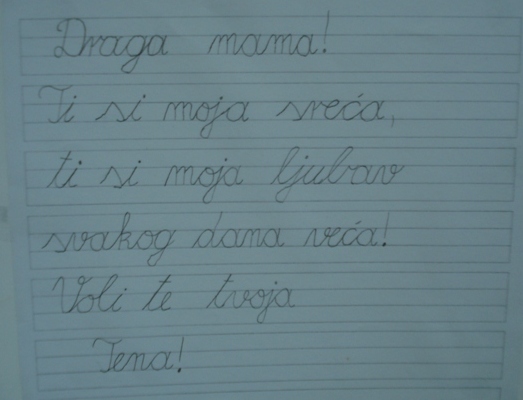 Draga mama!
Ti si moja sreća,
ti si moja ljubav
svakog dana veća!
Voli te tvoja
Tena!